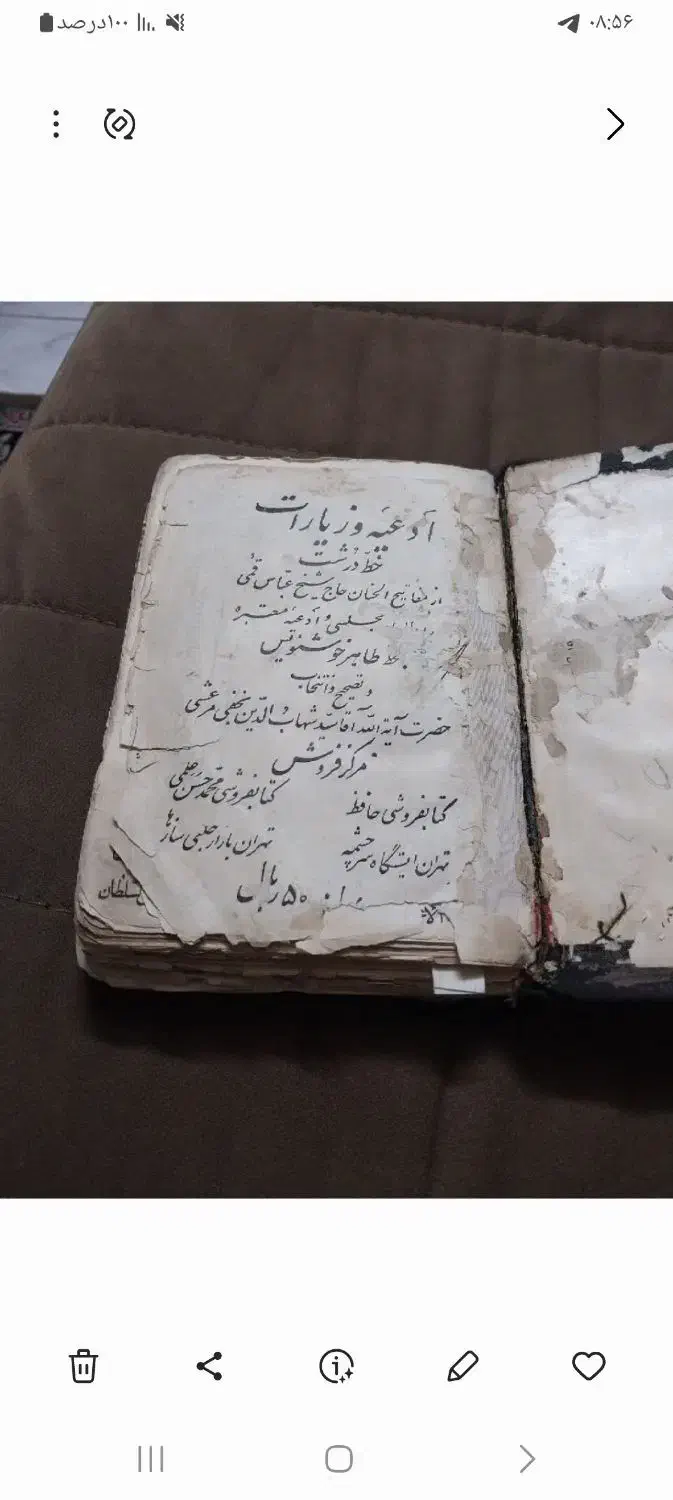 ۰۸:۵۶
۱۰۰درصد
ادعیه و زیارات
خط درشت
از مفاتیح الجنان حاج شیخ عباس قمی
مجلسی و ادعیه معتبره
بخط طاهر خوشنویس
و تصحیح و انتخاب
حضرت آیة الله آقا سید شهاب الدین نجفی مرعشی
مرکز فروش
کتابفروشی حافظ
تهران ایستگاه سرچشمه
کتابفروشی محمد حسن علمی
تهران بازار حلبی سازها
۵۰ ریال
سلطان